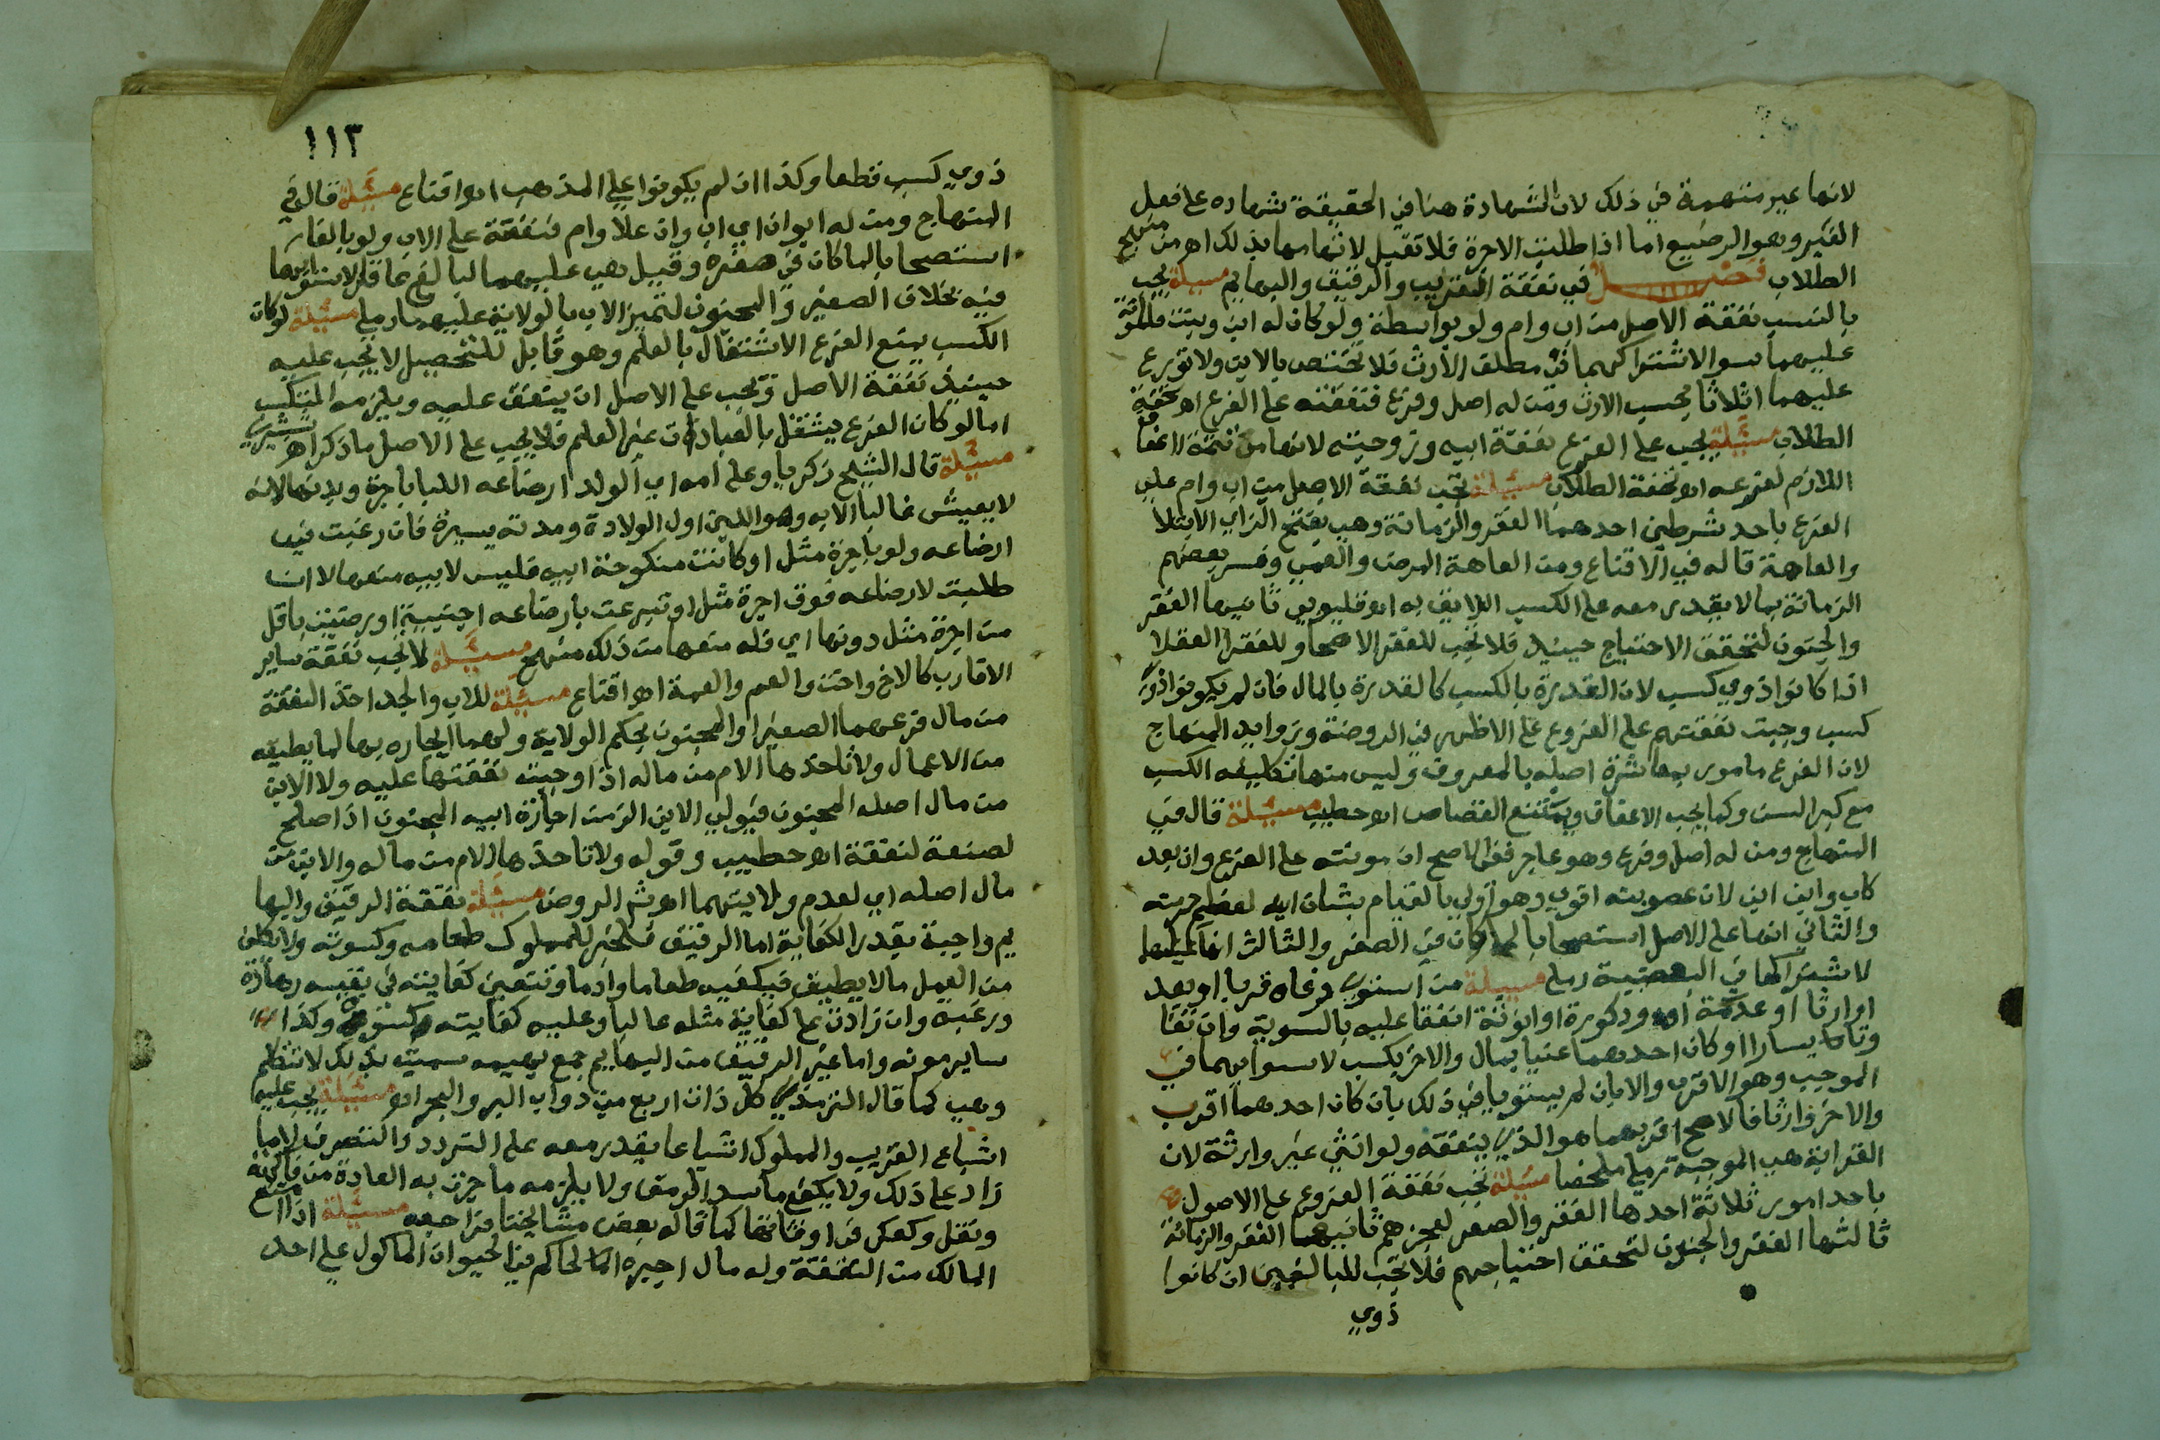 لانها غير متهمة في ذلك لان الشهادة هنا في الحقيقة شهاده على فعل
الغير وهو الرضيع اما اذا طلبت الاجرة فلا تقبل لانها مهابذلك اهر من منهج
الطلاب فصل في نفقة القريب والرقيق والبهايم مسيلة يجب
بالنسب نفقة الاصل من اب وام ولو بواسطة ولو كان له ابن وبنت فالمؤنة
عليهما سوا لاشتراكهما في مطلق الارث فلا تختص بالابن ولا توزع
عليهما اثلاثا بحسب الارث ومن له اصل وفرع فنفقته على الفرع اهر تحفة
الطلاب مسيلة يجب على الفرع نفقة ابيه وزوجيته لانها من تتمة الاعفاف
اللازم لفرعه اهر تحفة الطلاب مسيلة تجب نفقة الاصل من اب وام على
الفرع باحد شرطين احدهما الفقر والزمانة وهي بفتح الزاي الابتلا
والعاهة قاله في الاقناع ومن العاهة المرض والعمى وفسر بعضهم
الزمانة بما لا يقدر معه على الكسب اللايق به اهر قليوبي ثانيهما الفقر
والجنون لتحقق الاحتياج حينيذ فلا تجب للفقرا الاصحا وللفقرا العقلا
اذا كانوا ذوي كسب لان القدرة بالكسب كالقدرة بالمال فان لم يكونوا ذوي
كسب وجبت نفقتهم على الفروع على الاظهر في الروضة وزوايد المنهاج
لان الفرع مامور بمعاشرة اصله بالمعروف وليس منها تكليفه الكسب
مع كبر السن وكما يجب الاعفاف ويمتنع القصاص اهر خطيب مسيلة قال في
المنهاج ومن له اصل وفرع وهو عاجز ففي الاصح ان مونته على الفرع وان بعد
كاب وابن ابن لان عصوبته اقوى وهو اولى بالقيام بشان ابيه لعظم حرمته
والثاني انها على الاصل استصحابا لما كان في الصغر والثالث انها عليهما
لاشتراكهما في البعضية رملي مسيلة من استوى فرعاه قربا او بعد
او ارثا او عدمه او ذكورة او انوثة انفقا عليه بالسوية وان تفا
وتا يسارا او كان احدهما غنيا بمال والاخر بكسب لاستوايهما في
الموجب وهو القرب والا بان لم يستويا في ذلك بان كان احدهما اقرب
والاخر وارثا فالاصح اقربهما هو الذي ينفقه ولو انثى غير وارثة لان
القرابة هي الموجبة رملي ملخصا مسيلة تجب نفقة الفروع على الاصول
باحد امور ثلاثة احدها الفقر والصغر لعجزهم ثانيهما الفقر والزمانة
ثالثها الفقر والجنون لتحقق احتياجهم فلا تجب للبالغين ان كانوا
ذوي
١١٣
ذوي كسب قطعا وكذا ان لم يكونوا على المذهب اهر اقناع مسئلة قال في
المنهاج ومن له ابوان اي اب وان علا وام فنفقته على الاب ولو بالغا
استصحابا لما كان في صغره وقيل هي عليهما لبالغ عاقل لاستوايهما
فيه بخلاف الصغير والمجنون لتميز الاب بالولاية عليهما رملي مسئلة لو كان
الكسب يمنع الفرع الاشتغال بالعلم وهو قابل للتحصيل لا يجب عليه
حينيذ نفقة الاصل ويجب على الاصل ان ينفق عليه ويلزمه التكسب
اما لو كان الفرع يشتغل بالعبادات غير العلم فلا يجب على الاصل ما ذكر اهر بشبري
مسئلة قال الشيخ زكريا وعلى امه اي الولد ارضاعه اللبا باجرة وبدونها لانه
لا يعيش غالبا الا به وهو اللبن اول الولادة ومدته يسيرة فان رغبت في
ارضاعه ولو باجرة مثل او كانت منكوحة ابيه فليس لابيه منعها الا ان
طلبت لارضاعه فوق اجرة مثل او تبرعت بارضاعه اجنبية او رضيت باقل
من اجرة مثل دونها اي فله منعها من ذلك منهج مسئلة لا تجب نفقة ساير
الاقارب كالاخ واخت والعم والعمة اهر اقناع مسئلة للاب والجد اخذ النفقة
من مال فرعهما الصغير او المجنون بحكم الولاية ولهما ايجاره بها لما يطيقه
من الاعمال ولا تاخذها الام من ماله اذا وجبت نفقتها عليه ولا الابن
من مال اصله المجنون فيولي الابن الزمن اجارة ابيه المجنون اذا صلح
لصنعة لنفقة اهر خطيب وقوله ولا تاخذها الام من ماله والابن من
مال اصله اي لعدم ولايتهما اهر ش الروض مسئلة نفقة الرقيق والبها
يم واجبة بقدر الكفاية اما الرقيق فلخبر للمملوك طعامه وكسوته ولا يكلف
من العمل ما لا يطيق فيكفيه طعاما وادما وتتعين كفايته في نفسه زهادة
ورغبة وان زادت على كفاية مثله غالبا وعليه كفايته وكسوته وكذا
ساير مونه واما غير الرقيق من البهايم جمع بهيمه سميت بذلك لانها لا تتكلم
وهي كما قال الترمذي كل ذات اربع من دواب البر والبحر اهر مسئلة يجب عليه
اشباع القريب والمملوك اشباعا يقدر معه على التردد والتصرف لا ما
زاد على ذلك ولا يكفي ما سد الرمق ولا يلزمه ما جرت به العادة من فاكهة
ونقل وكعك في اوقاتها كما قاله بعض مشايخنا فراجعه مسئلة اذا امتنع
المالك من النفقة وله مال اجبره الحاكم في الحيوان الماكول على احد